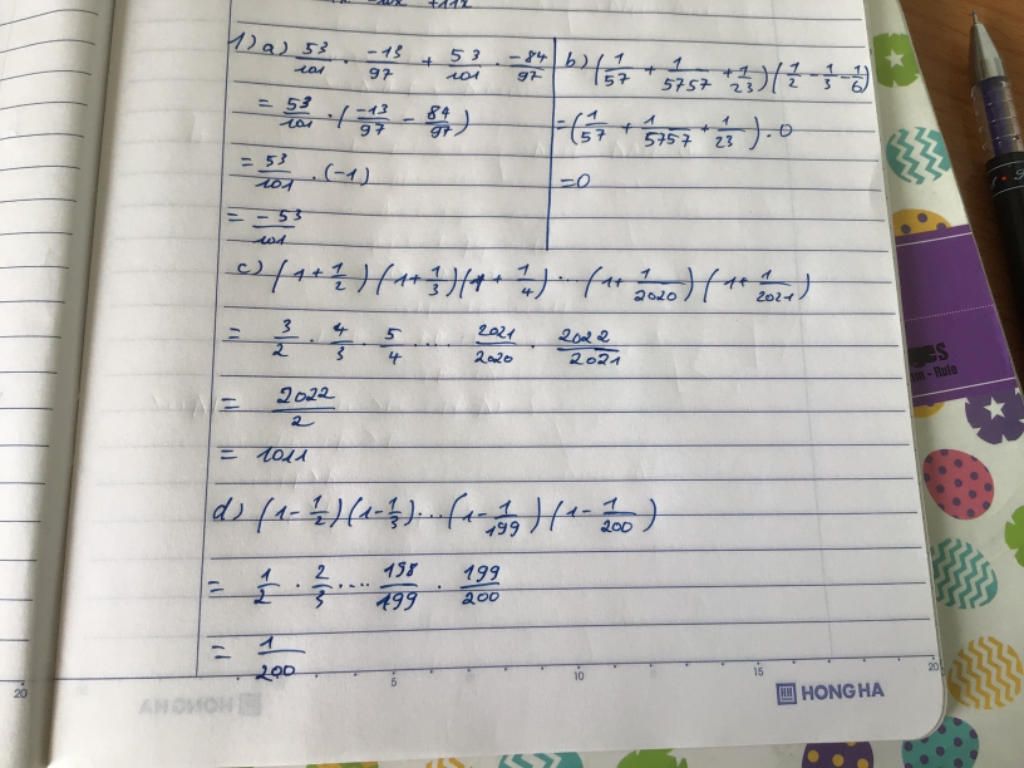 1) a) 53/101 · -13/97 + 53/101 · -84/97
= 53/101 · (-13/97 - 84/97)
= 53/101 · (-1)
= -53/101
b) (1/57 + 1/5757 + 1/23)(1/2 - 1/3 - 1/6)
= (1/57 + 1/5757 + 1/23) . 0
= 0
c) (1 + 1/2)(1 + 1/3)(1 + 1/4) ... (1 + 1/2020)(1 + 1/2021)
= 3/2 · 4/3 · 5/4 .... 2021/2020 · 2022/2021
= 2022/2
= 1011
d) (1 - 1/2)(1 - 1/3) ... (1 - 1/199)(1 - 1/200)
= 1/2 · 2/3 .... 198/199 · 199/200
= 1/200
20 5 10 15 20
HH HONG HA